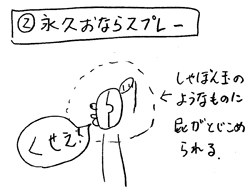 ②永久おならスプレー
←しゃぼん玉の
ようなものに
屁がとじこめ
られる.
くせえ!